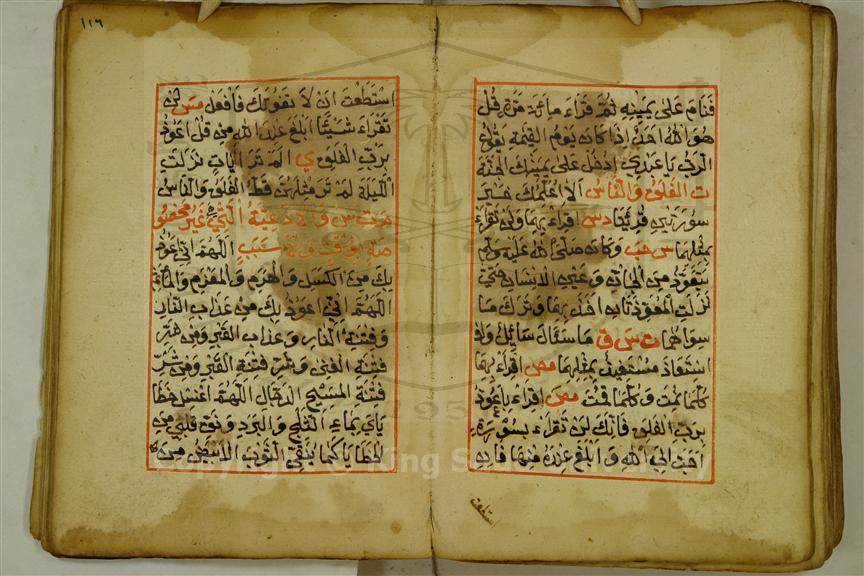 فنام على يمينه ثم قراء مائة مرة قل
هو الله احد اذا كان يوم القيمة يقول
الرب يا عبدي ادخل على يمينك الجنة
ت الفلق والناس الا اعلمك خير
سورتين قرئتا دس اقراء بهما ولن تقراء
بمثلهما س حب وكان صلى الله عليه وسلم
يتعوذ من الجان وعين الانسان حتى
نزلت المعوذتان اخذ بهما وترك ما
سواهما ت س ق ما سئال سائل ولا
استعاذ مستعيذ بمثلهما مص اقراء بهما
كلما نمت وكلما قمت مص اقراء باعوذ
برب الفلق فانك لن تقراء بسورة
احب الى الله و ابلغ عنده منها فان
استطعت
١١٦
استطعت ان لا تفوتك فافعل مس لن
تقراء شيئا ابلغ عند الله من قل اعوذ
برب الفلق ي الم تر ايات نزلت
الليلة لم تر مثلهن قط الفلق والناس
م ت س والادعية التي غير مخصو
صة بوقت ولا سبب اللهم اني اعوذ
بك من الكسل والهرم والمغرم والمأثم
اللهم اني اعوذ بك من عذاب النار
وفتنة النار وعذاب القبر ومن شر
فتنة الغنى وشر فتنة القبر ومن شر
فتنة المسيح الدجال اللهم اغسل خطا
ياي بماء الثلج والبرد ونق قلبي من
الخطايا كما ينقى الثوب الابيض من